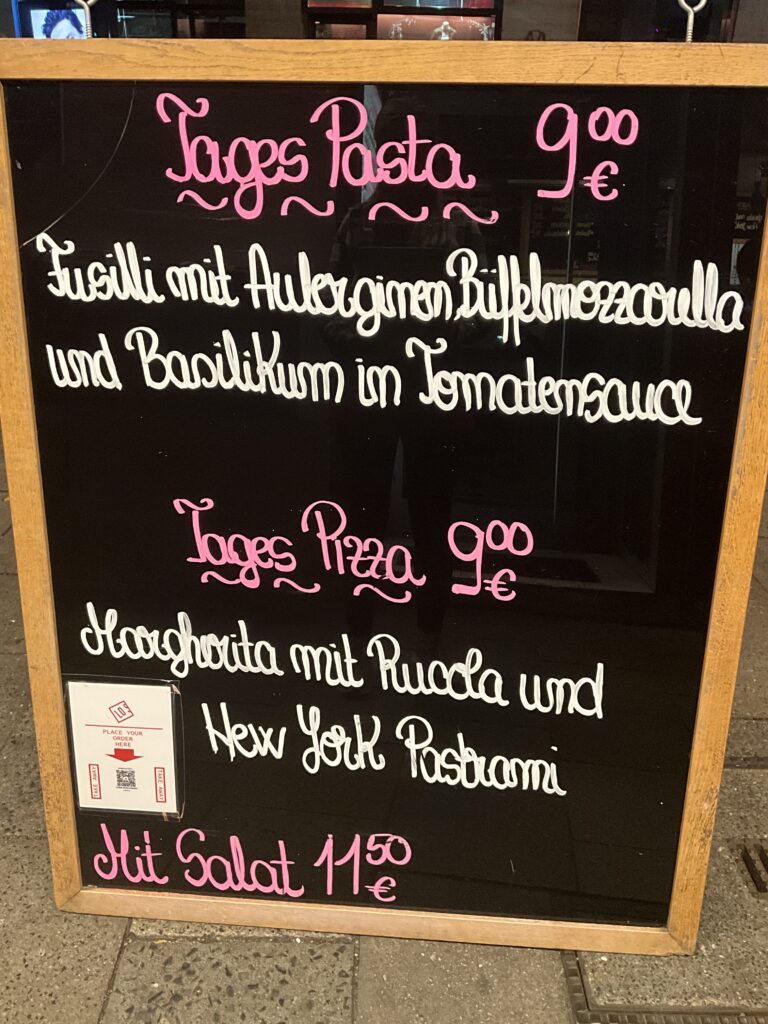 Tages Pasta 900 €
Fusilli mit Auberginen, Büffelmozzarella
und Basilikum in Tomatensauce
Tages Pizza 900 €
Margherita mit Rucola und
New York Pastrami
PLACE YOUR
ORDER
HERE
TAKE AWAY
TAKE AWAY
Mit Salat 11 50 €